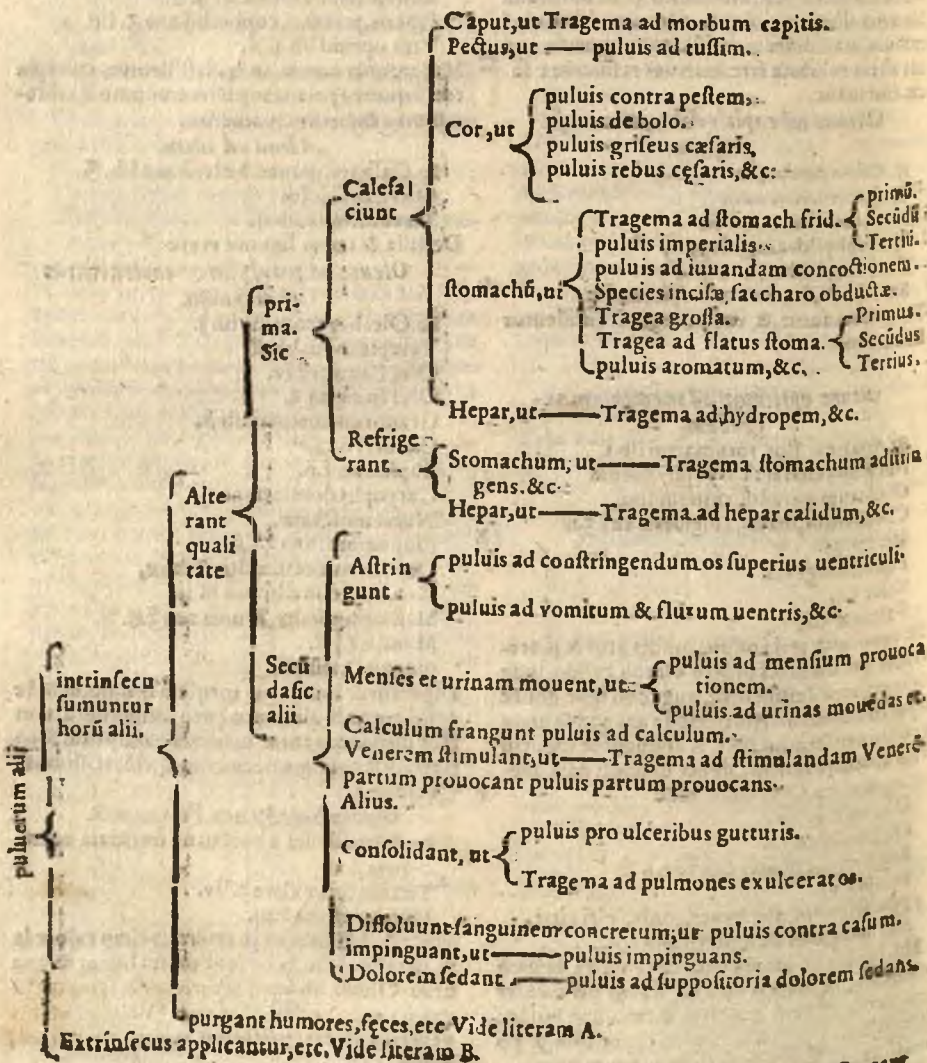 Caput, ut Tragema ad morbum capitis.
Pectus, ut — puluis ad tussim.
Cor, ut
puluis contra pestem,
puluis de bolo.
puluis griseus cæsaris,
puluis rebus cęsaris, &c:
Calefa
ciunt
stomachũ, ut
Tragema ad stomach frid.
primũ.
Secũdũ
Tertiũ.
puluis imperialis.
puluis ad iuuandam concoctionem.
Species incisæ, saccharo obductæ.
Tragea grossa.
Tragea ad flatus stoma.
Primus.
Secũdus
Tertius.
puluis aromatum, &c.
Hepar, ut — Tragema ad hydropem, &c.
pri-
ma.
Sic
Refrige
rant.
Stomachum, ut — Tragema stomachum adstrin
gens. &c.
Hepar, ut — Tragema ad hepar calidum, &c.
Alte
rant
quali
tate
Astrin
gunt
puluis ad constringendum os superius uentriculi.
puluis ad vomitum & fluxum uentris, &c.
Secũ
da sic
alii
Menses et urinam mouent, ut
puluis ad mensium prouoca
tionem.
puluis ad urinas mouẽdas et.
Calculum frangunt puluis ad calculum.
Venerem stimulant, ut — Tragema ad stimulandam Venerẽ
partum prouocant puluis partum prouocans.
Alius.
Consolidant, ut
puluis pro ulceribus gutturis.
Tragema ad pulmones exulceratos.
Dissoluunt sanguinem concretum, ut puluis contra casum.
impinguant, ut — puluis impinguans.
Dolorem sedant — puluis ad suppositoria dolorem sedans.
puluerum alij
intrinsecu
sumuntur
horũ alii.
purgant humores, fęces, etc Vide literam A.
Extrinsecus applicantur, etc. Vide literam B.